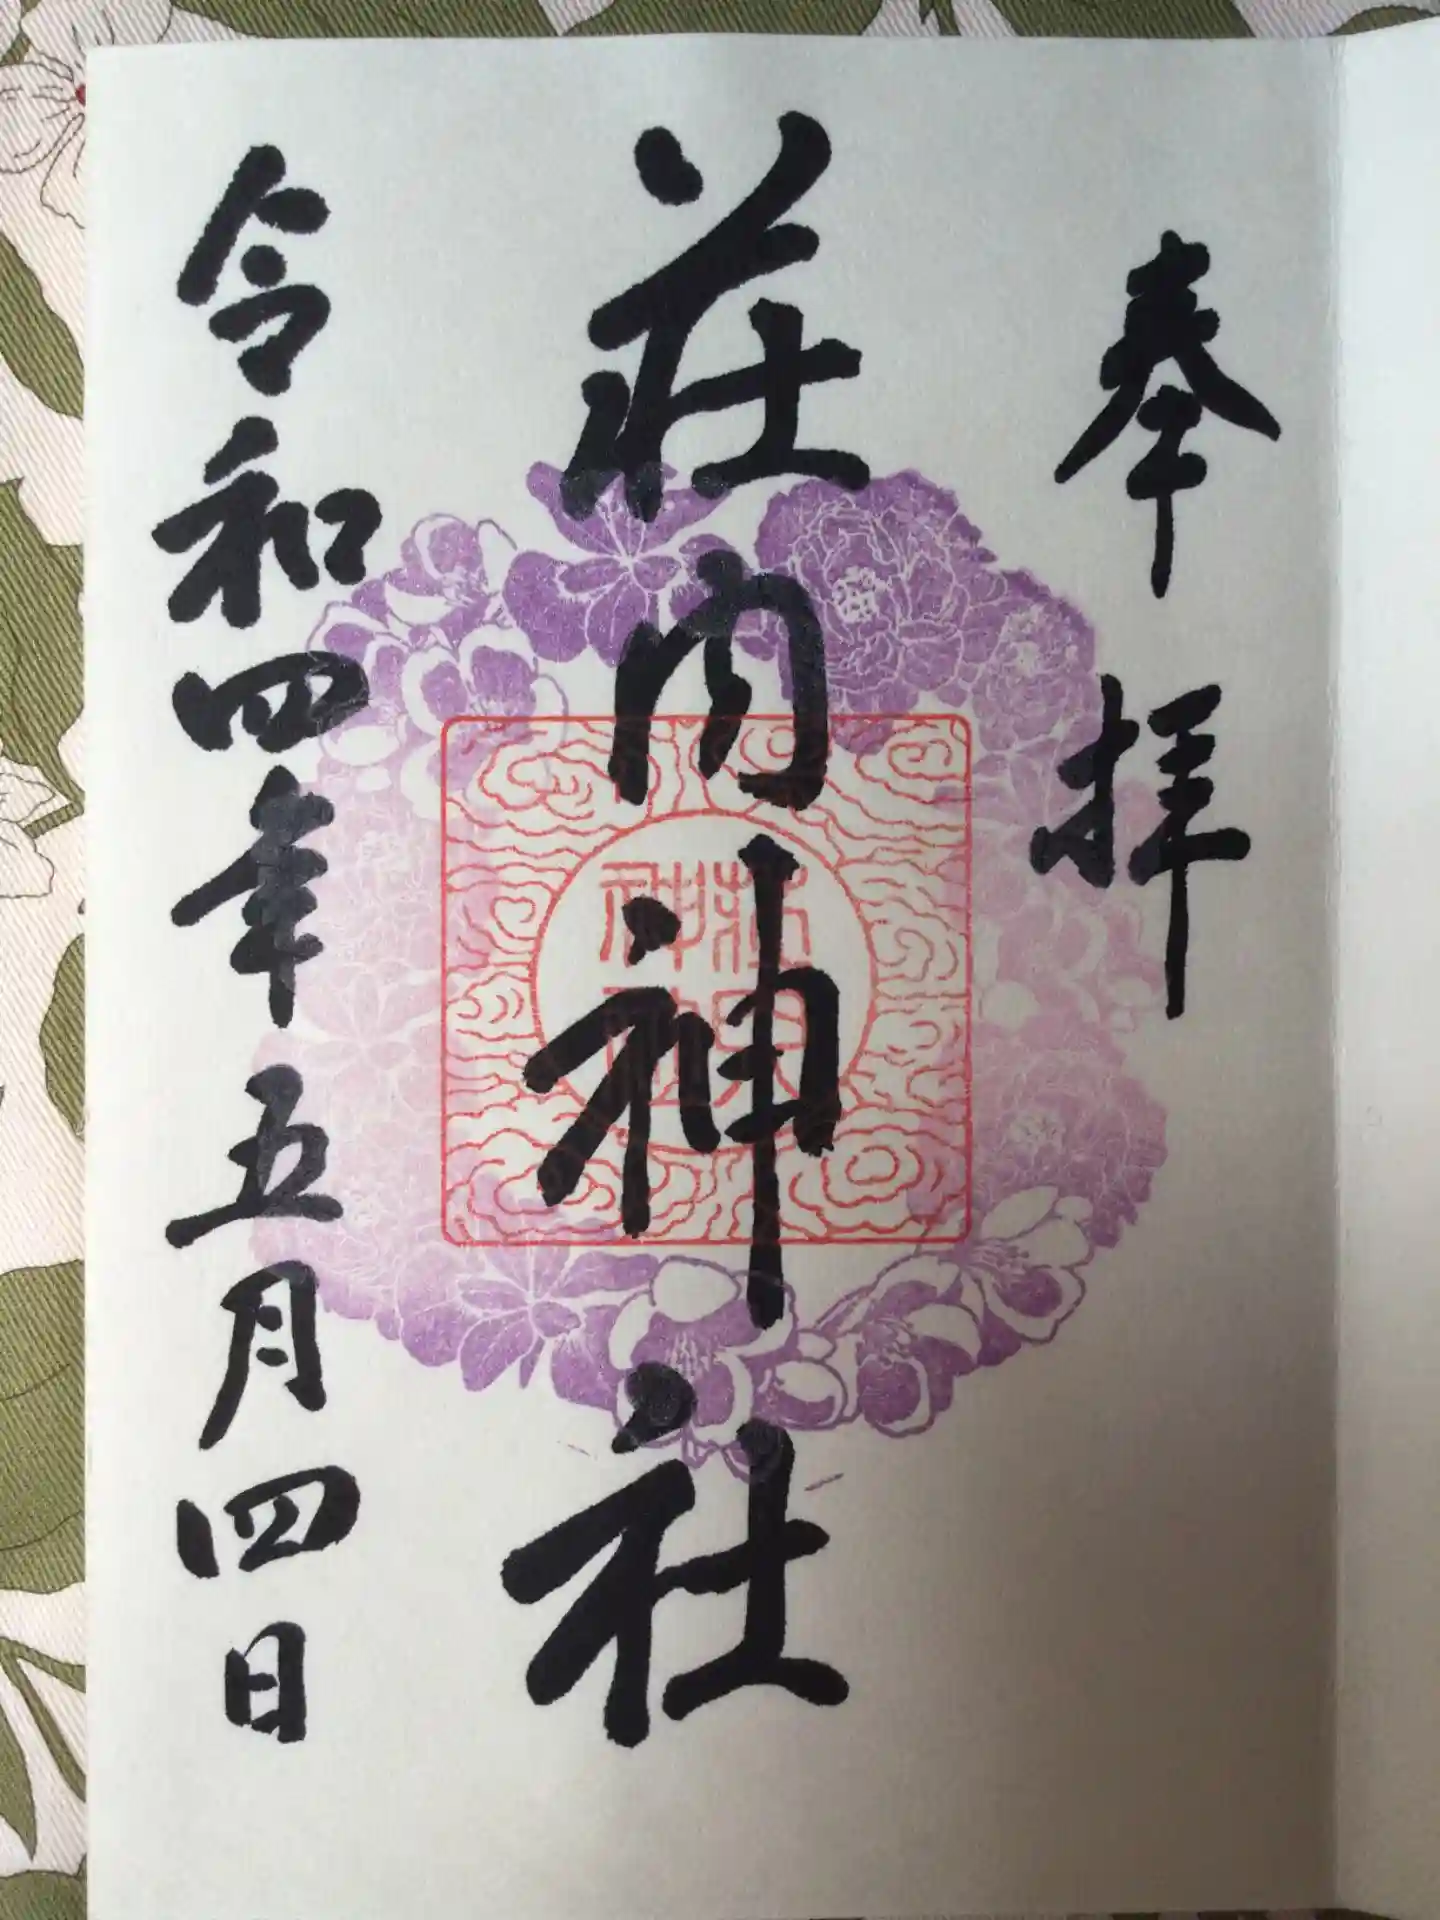 奉拝
荘内神社
令和四年五月四日
荘内
神社